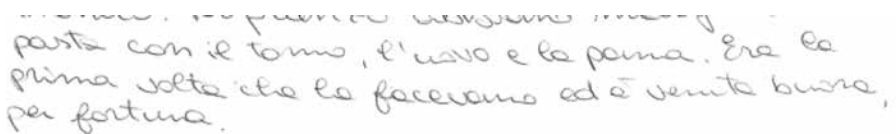 pasta con il tonno, l'uovo e la panna. Era la
prima volta che la facevamo ed è venuta buona,
per fortuna.